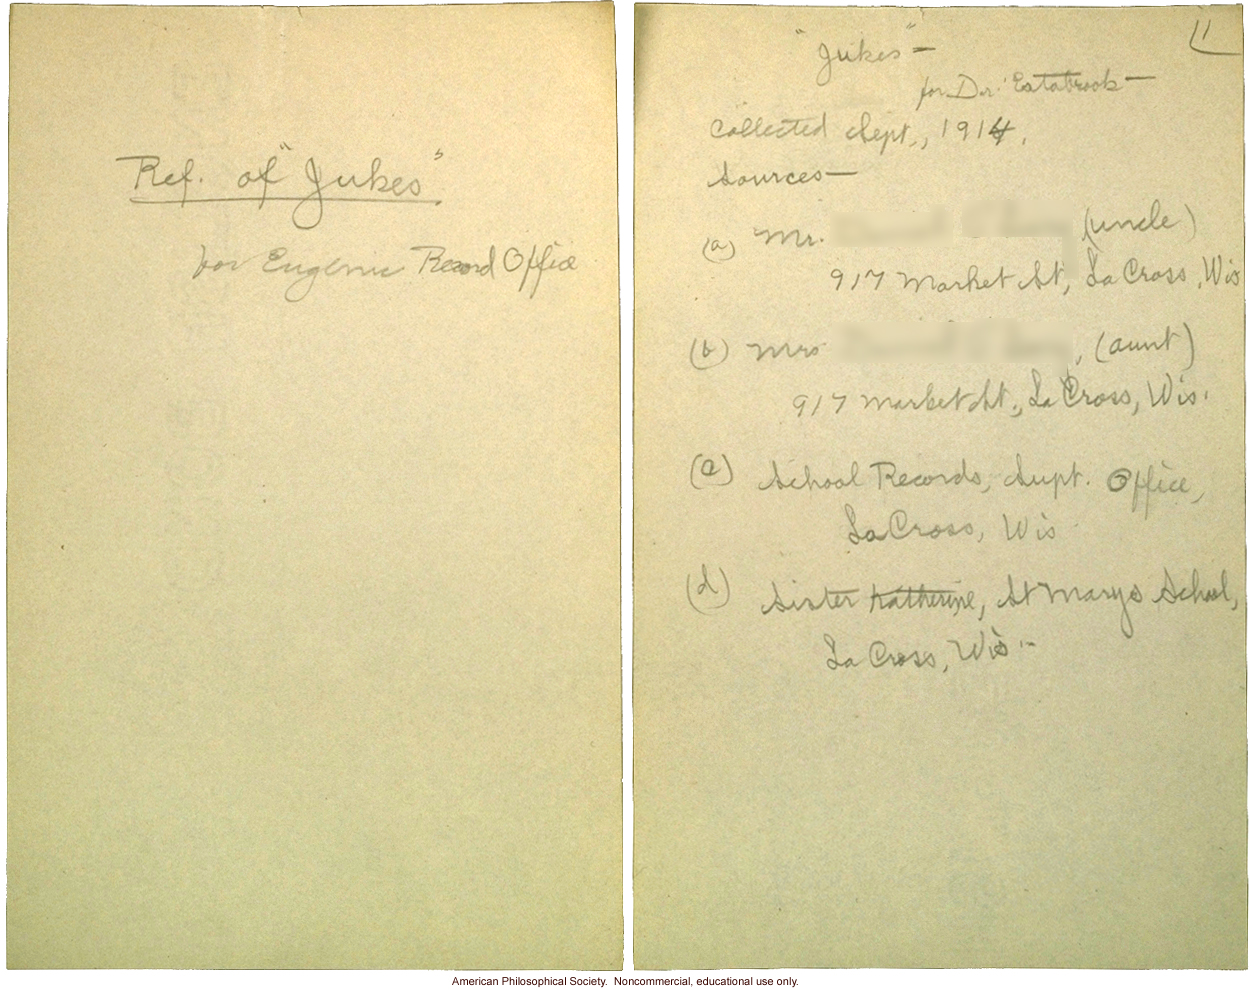 Ref. of "Jukes"
for Eugenic Record Office
11
"Jukes" —
for Dr. Estabrook —
Collected Sept., 1914.
Sources —
(a) Mr. (uncle)
917 Market St, La Cross, Wis
(b) Mrs , (aunt)
917 Market St., La Cross, Wis.
(c) School Records, Supt. Office,
La Cross, Wis
(d) Sister Katherine, St Marys School,
La Cross, Wis. -
American Philosophical Society. Noncommercial, educational use only.